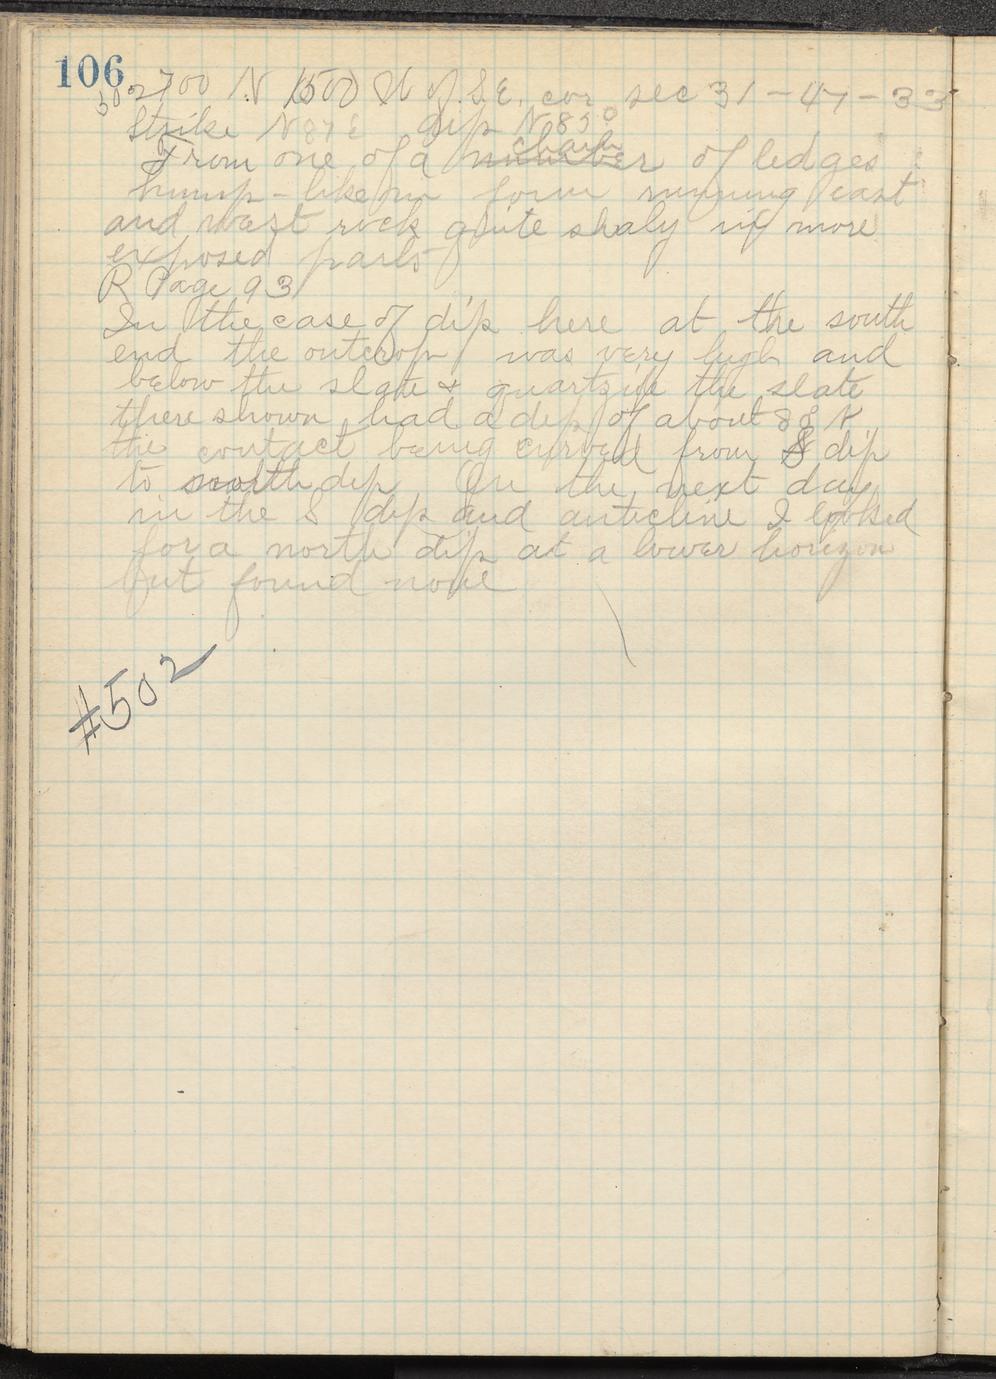 106
502 2700 N 1500 W of S.E. cor sec 31-47-33
Strike N 87 E dip N 85°
chain
From one of a number of ledges
hump-like in form running east
and west rock quite shaly in more
exposed parts
R Page 93
In the case of dip here at the south
end the outcrop was very high and
below the slate & quartzite the slate
there shown had a dip of about 88 N
the contact being curved from S dip
to north dip On the next day
in the S dip and anticline I looked
for a north dip at a lower horizon
but found none
#502